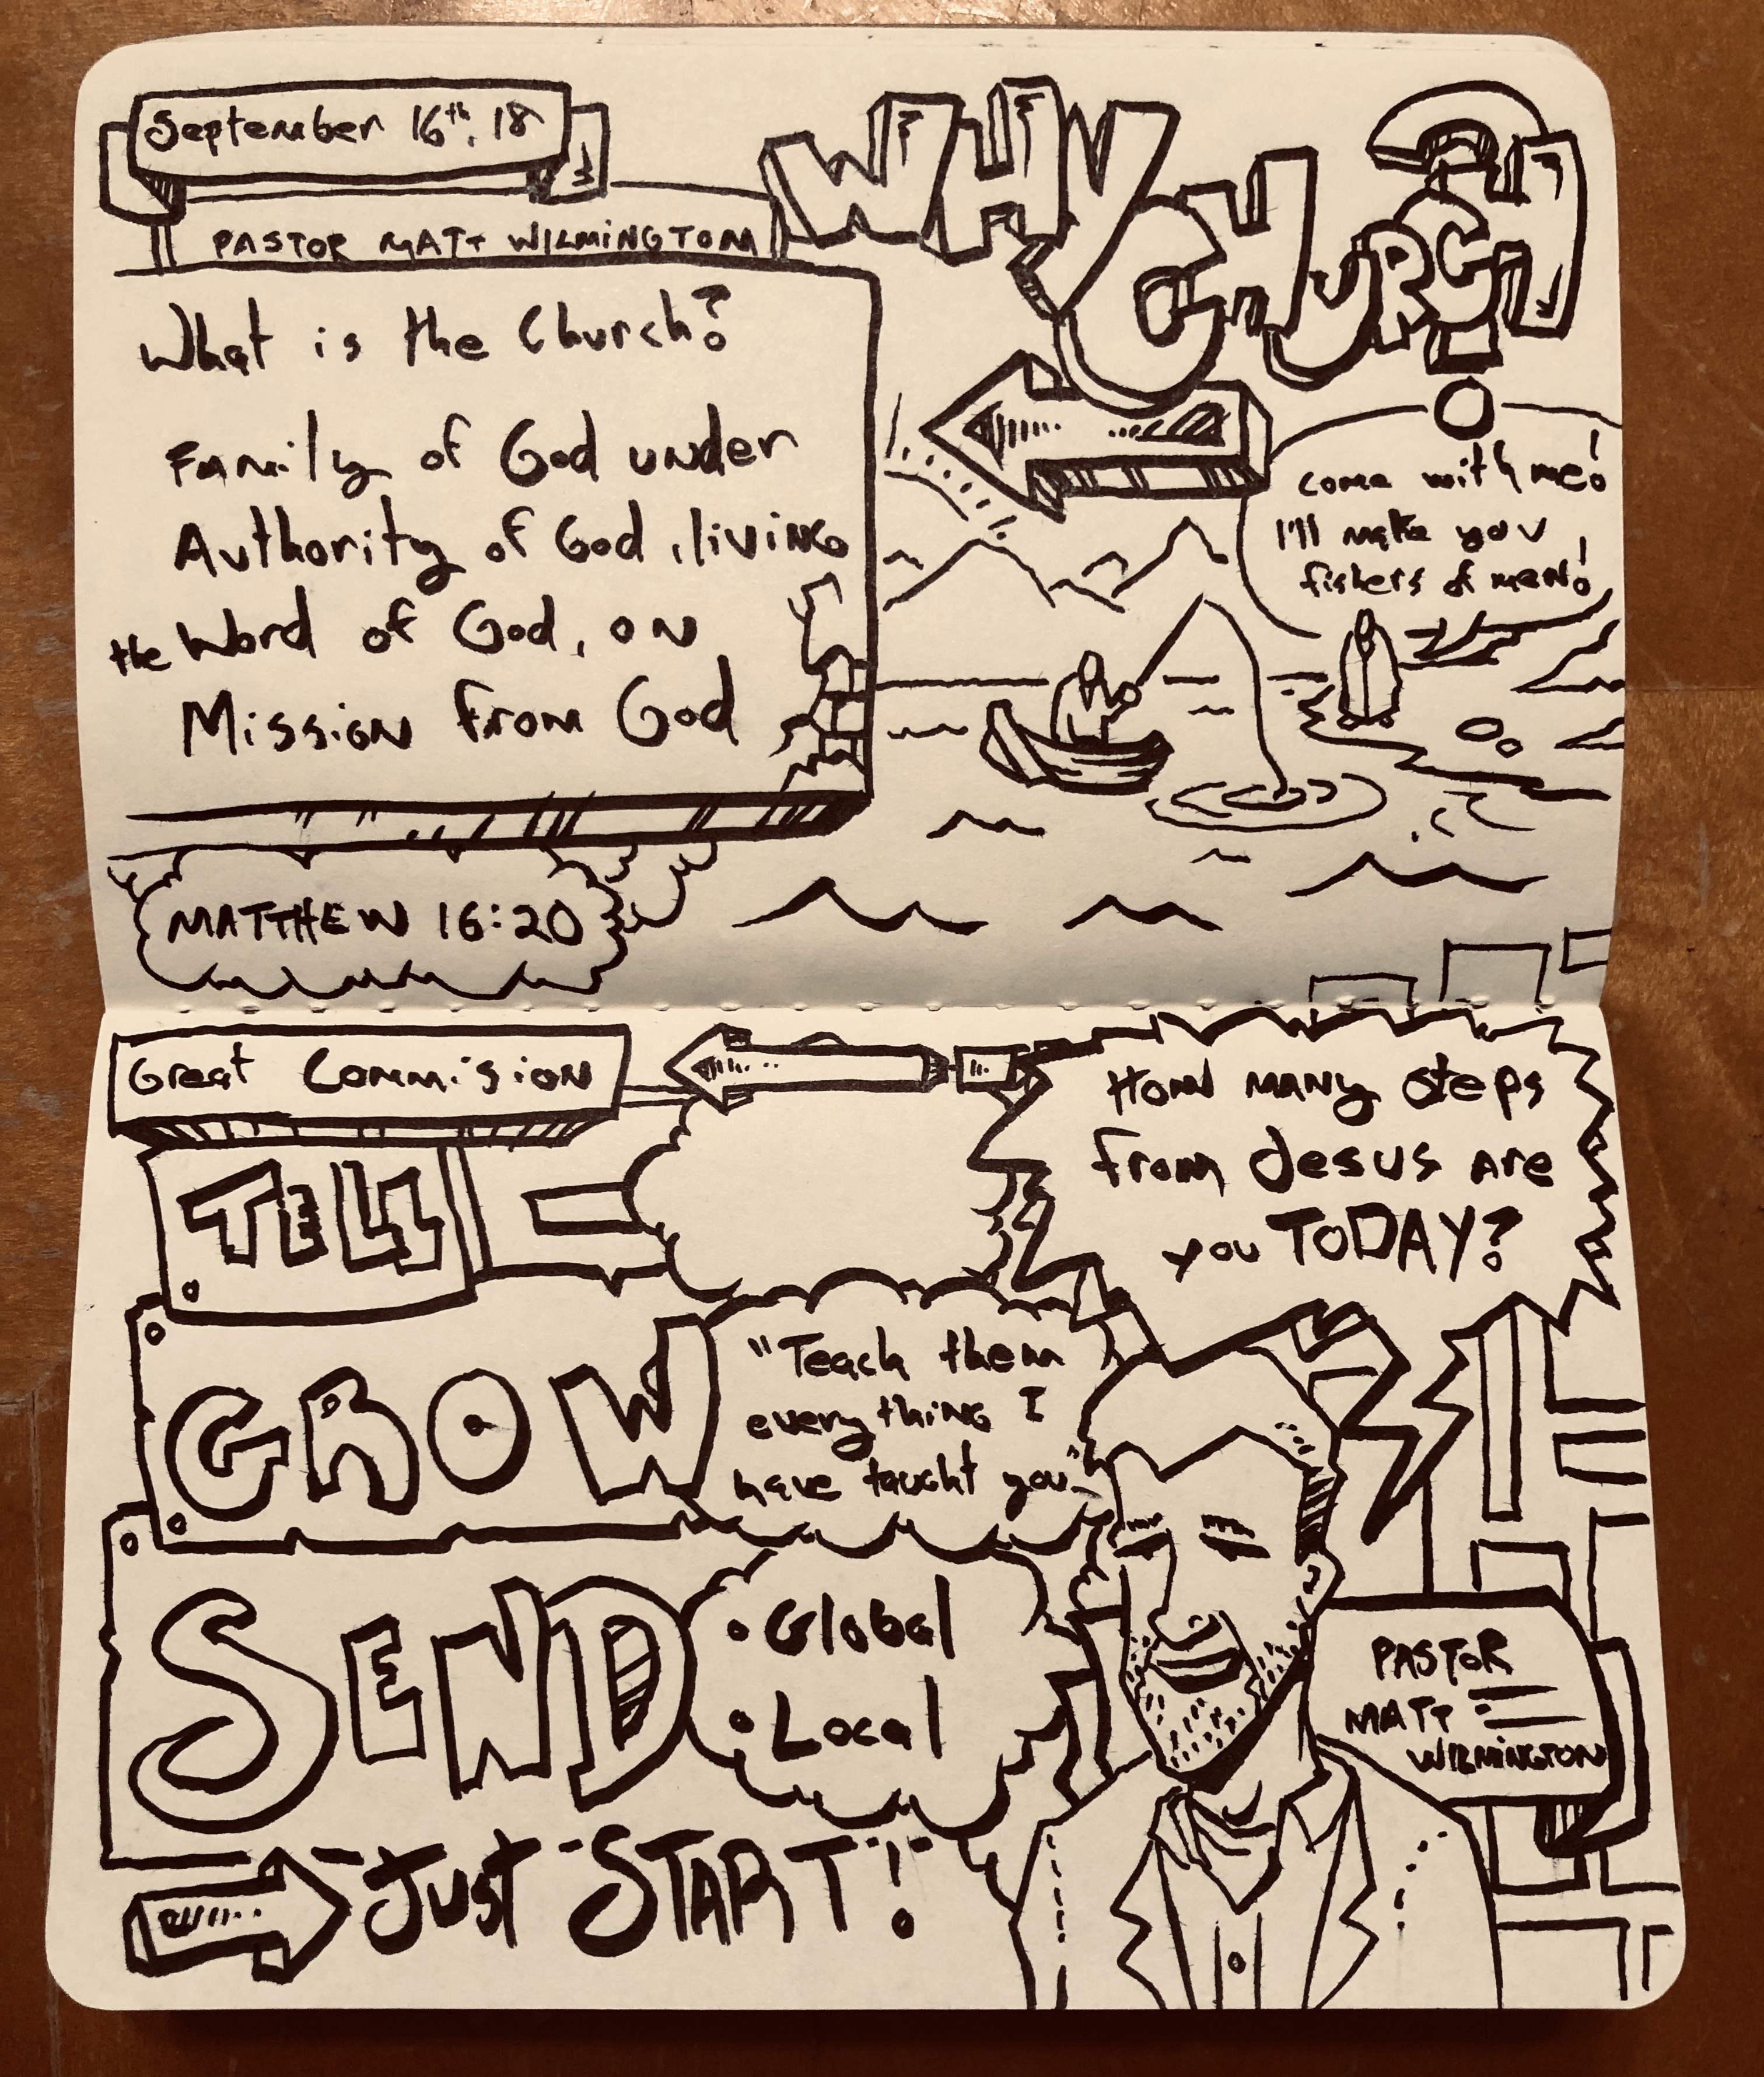 September 16th, 18
PASTOR MATT WILMINGTON
WHY
CHURCH?
What is the Church?
Family of God under
Authority of God, living
the Word of God, on
Mission from God
come with me!
I'll make you
fishers of men!
MATTHEW 16:20
Great Commision
How many steps
from Jesus are
you TODAY?
TELL
GROW
"Teach them
everything I
have taught you"
SEND
• Global
• Local
PASTOR
MATT
WILMINGTON
JUST START!